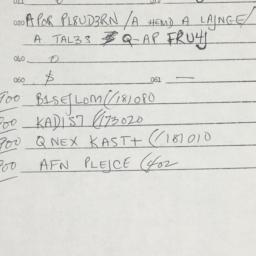 020 APOR PL8UD3RN / A HEMD A LAJNGE/
A TAL33 Q-AP FRU4J
040 0
060 $ 061 —
700 B1SEJLOM (/181080
700 KADIS7 (/173020
900 QNEX KAST+ (/181010
900 AFN PLEJCE (402